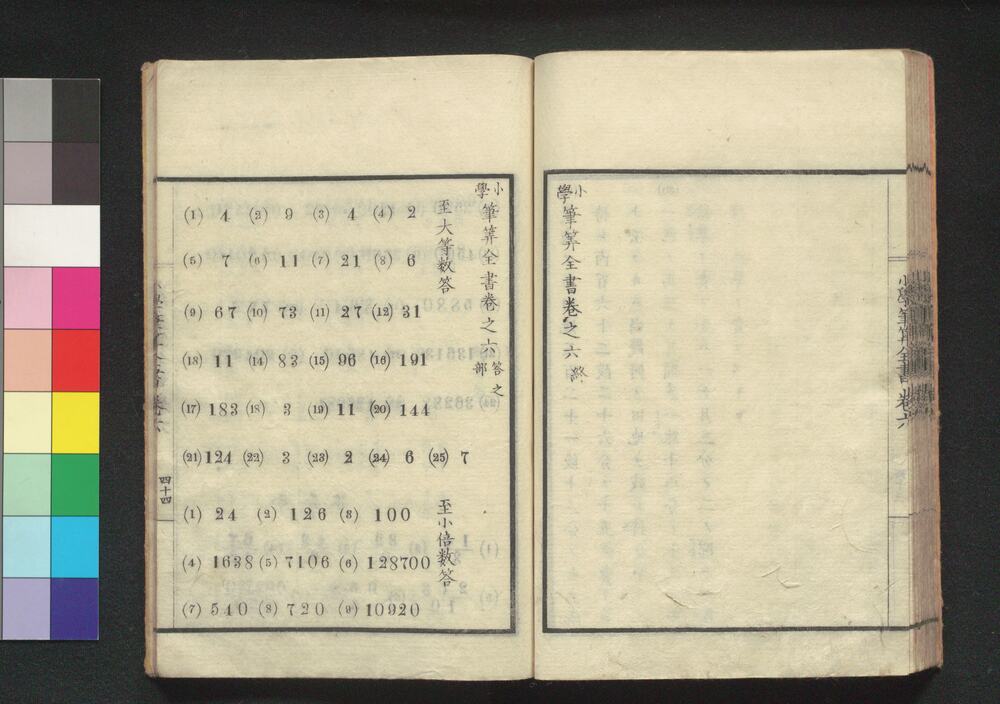 小學筆筭全書卷之六終
小學筆筭全書卷六
小學筆筭全書卷之六 答之部
至大等数答
(1) 4 (2) 9 (3) 4 (4) 2
(5) 7 (6) 11 (7) 21 (8) 6
(9) 67 (10) 73 (11) 27 (12) 31
(13) 11 (14) 83 (15) 96 (16) 191
(17) 183 (18) 3 (19) 11 (20) 144
(21) 124 (22) 3 (23) 2 (24) 6 (25) 7
至小倍数答
(1) 24 (2) 126 (3) 100
(4) 1638 (5) 7106 (6) 128700
(7) 540 (8) 720 (9) 10920
四十四